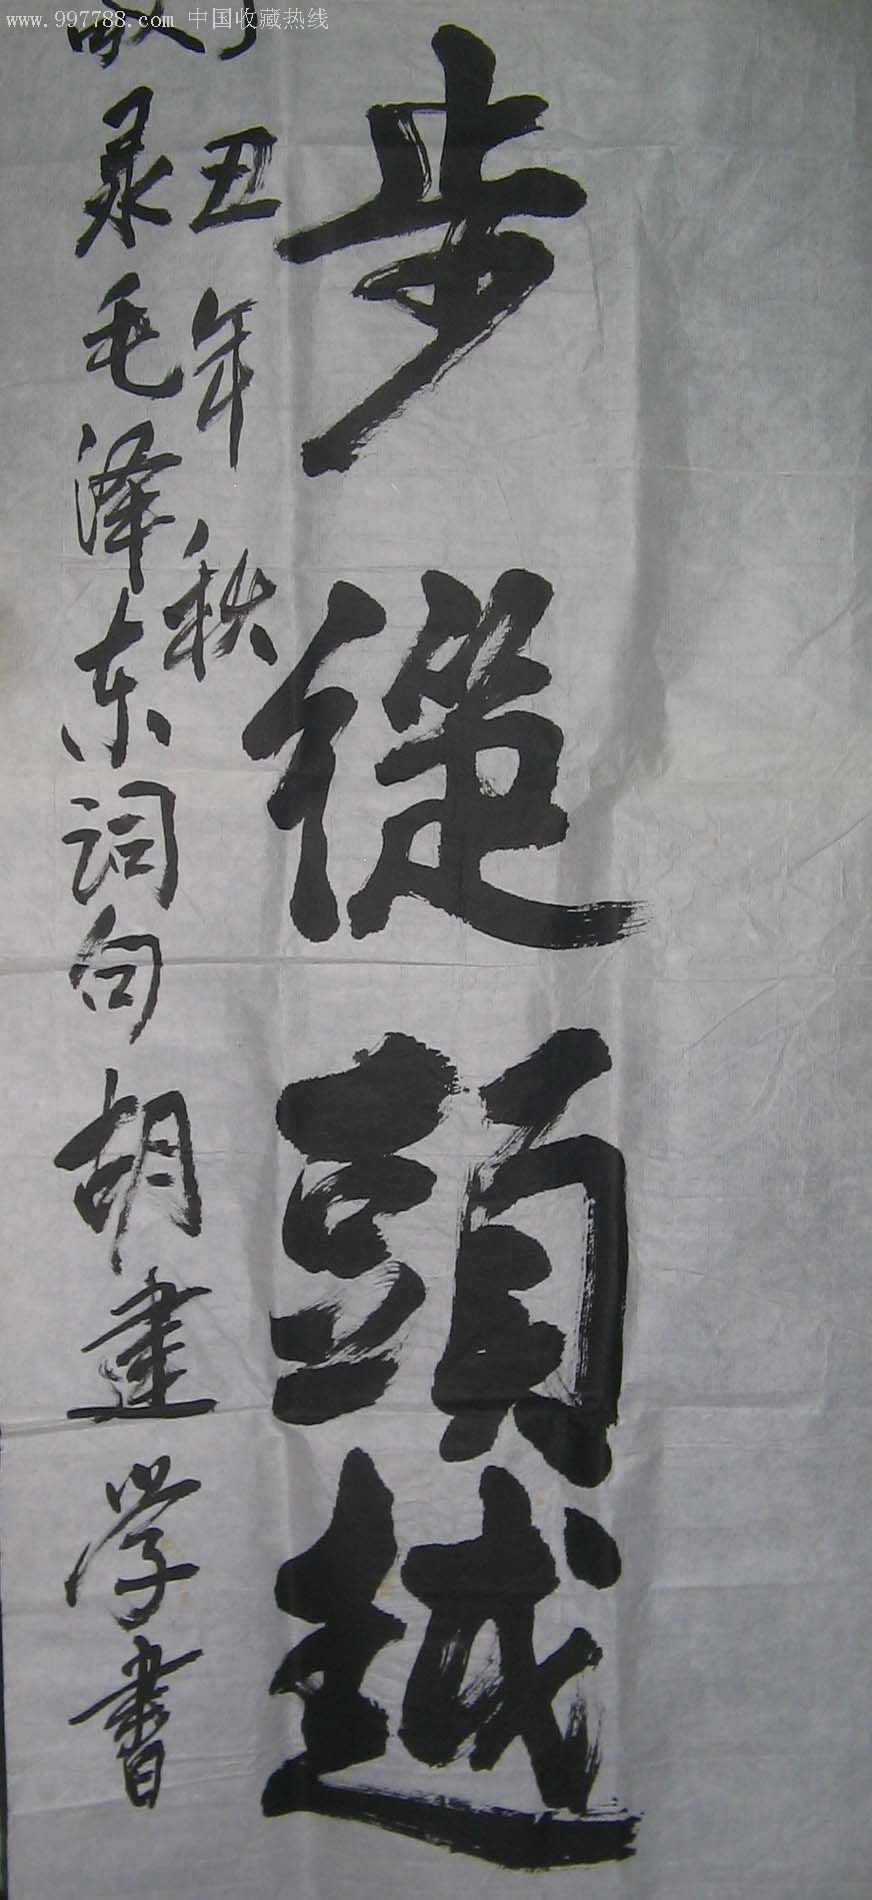 www.997788.com 中国收藏热线
步從頭越
丑年秋
敬录毛泽东词句胡建学書